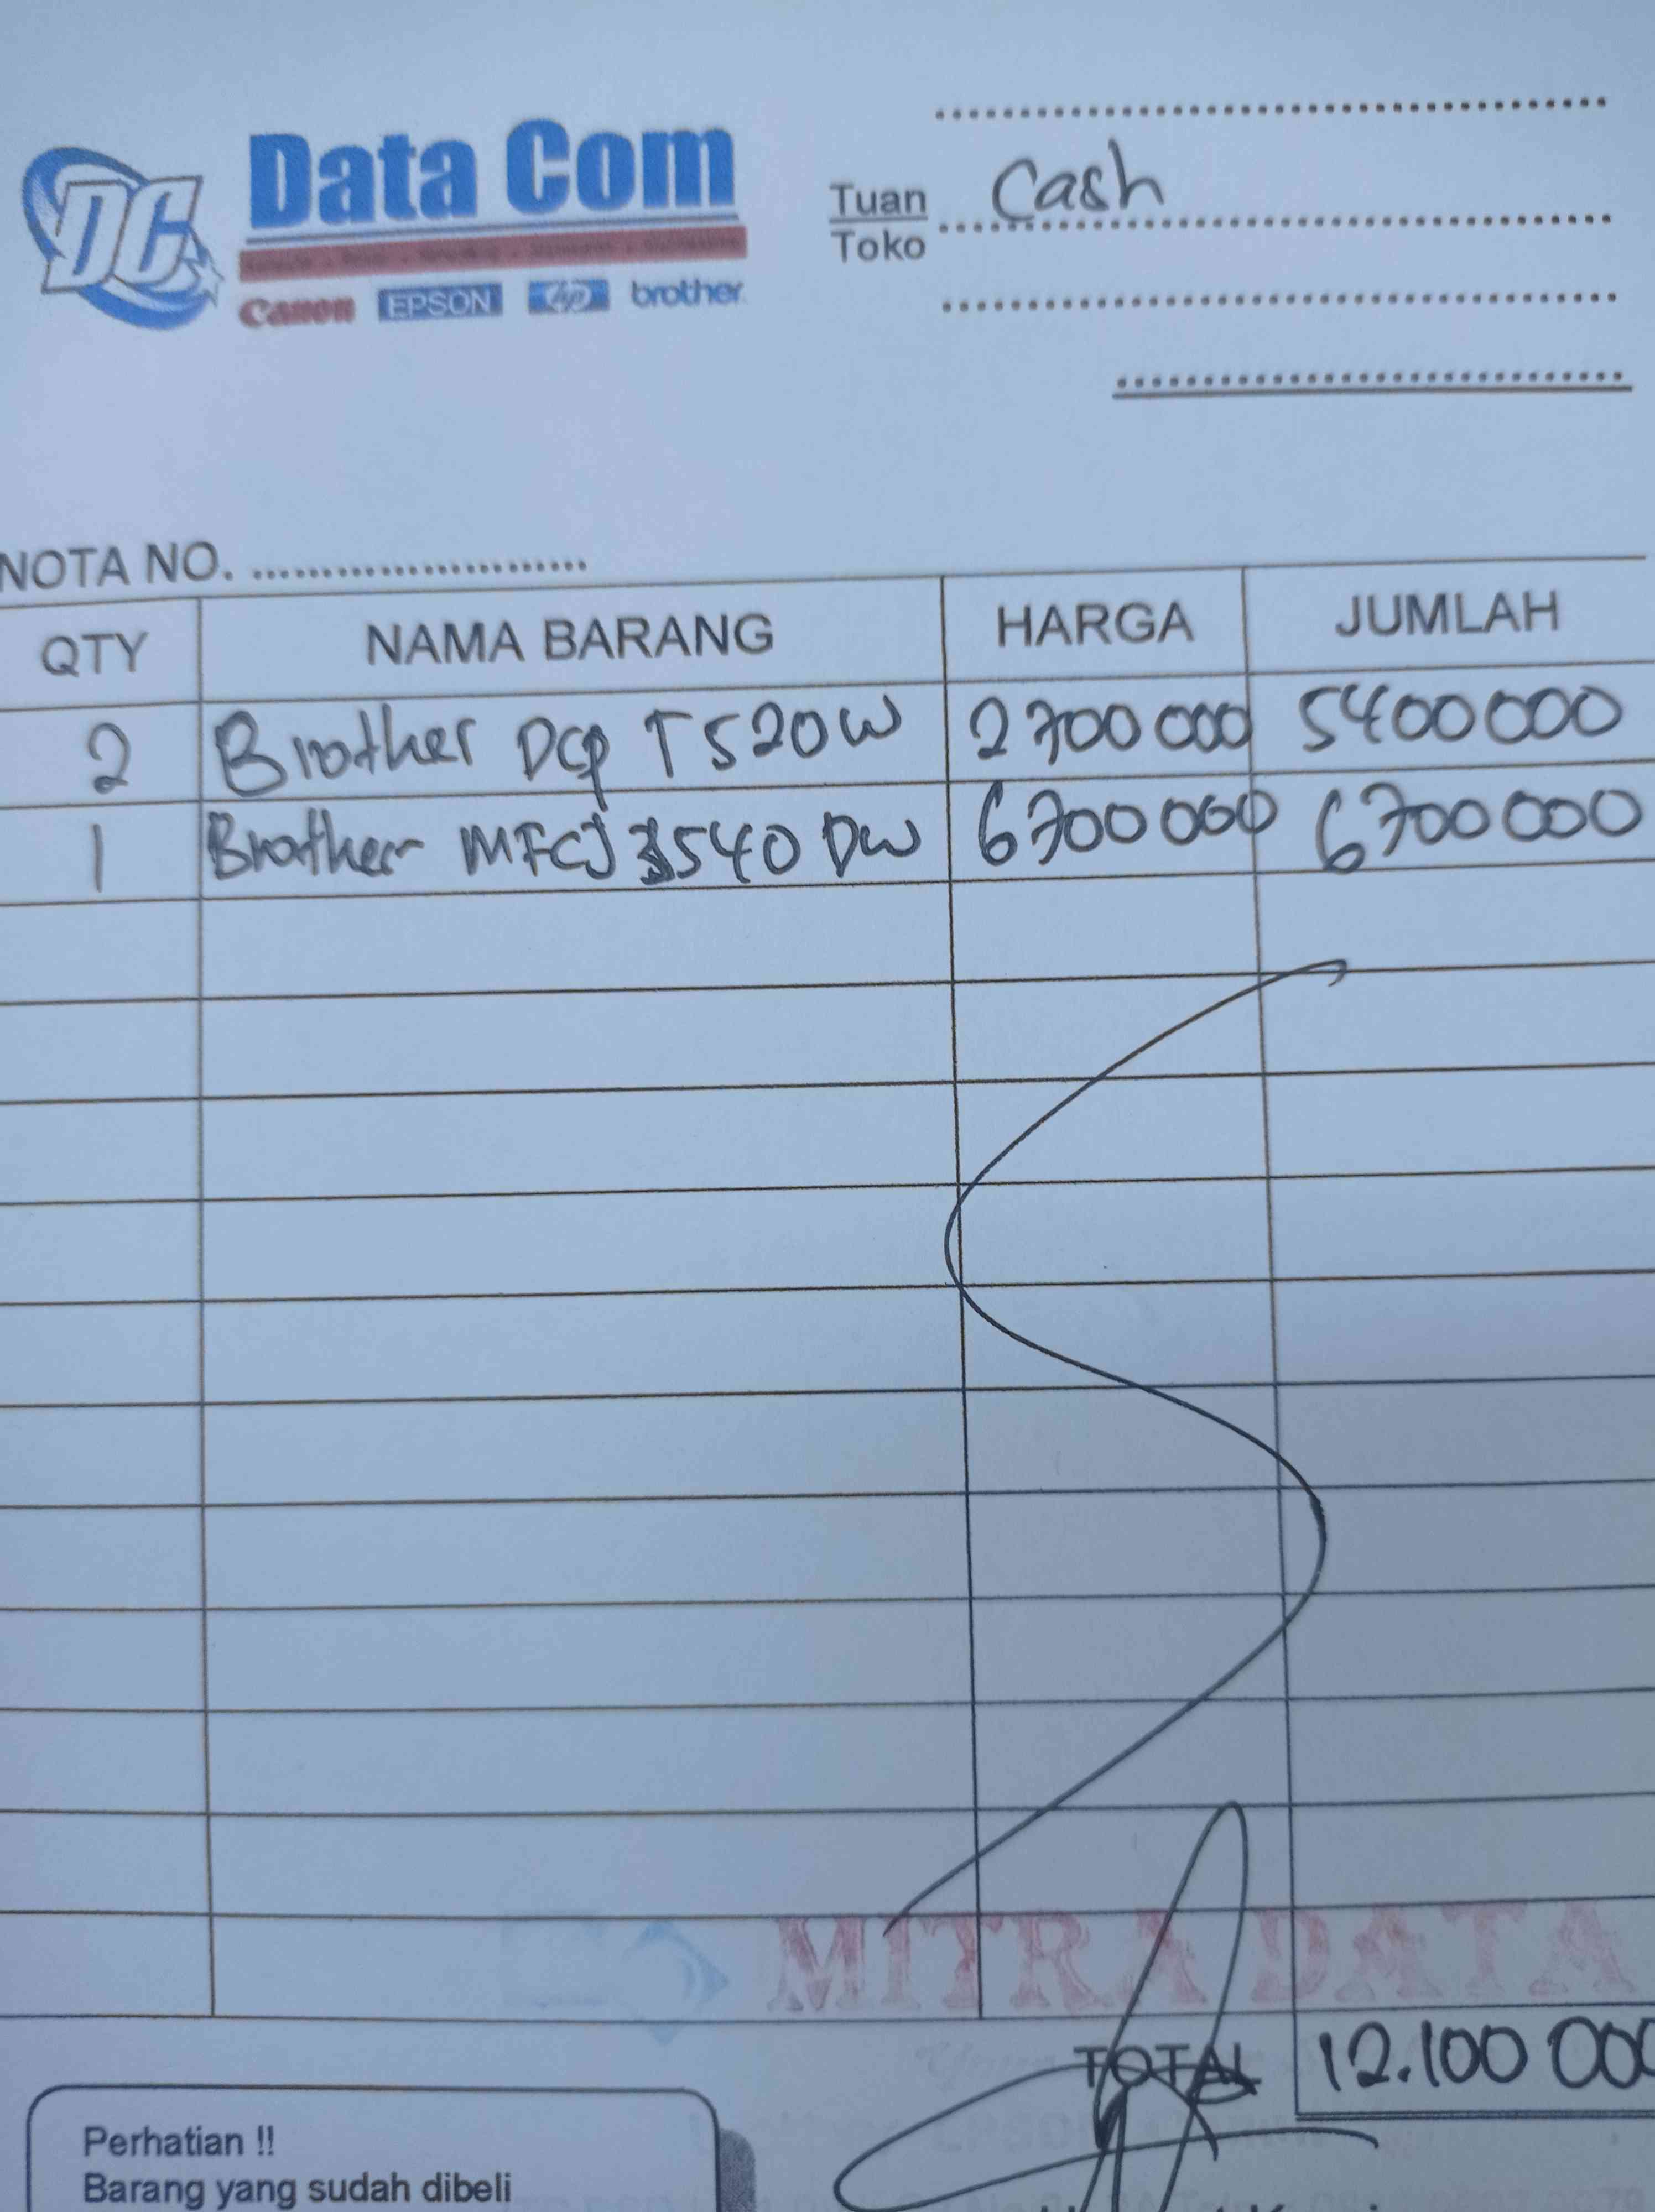 DC
Data Com
Canon EPSON hp brother
Tuan Cash
Toko
NOTA NO. ........................
QTY NAMA BARANG HARGA JUMLAH
2 Brother DCP T520W 2700 000 5400000
1 Brother MFCJ 3540 DW 6700 000 6700000
MITRA DATA
TOTAL 12.100 000
Perhatian !!
Barang yang sudah dibeli